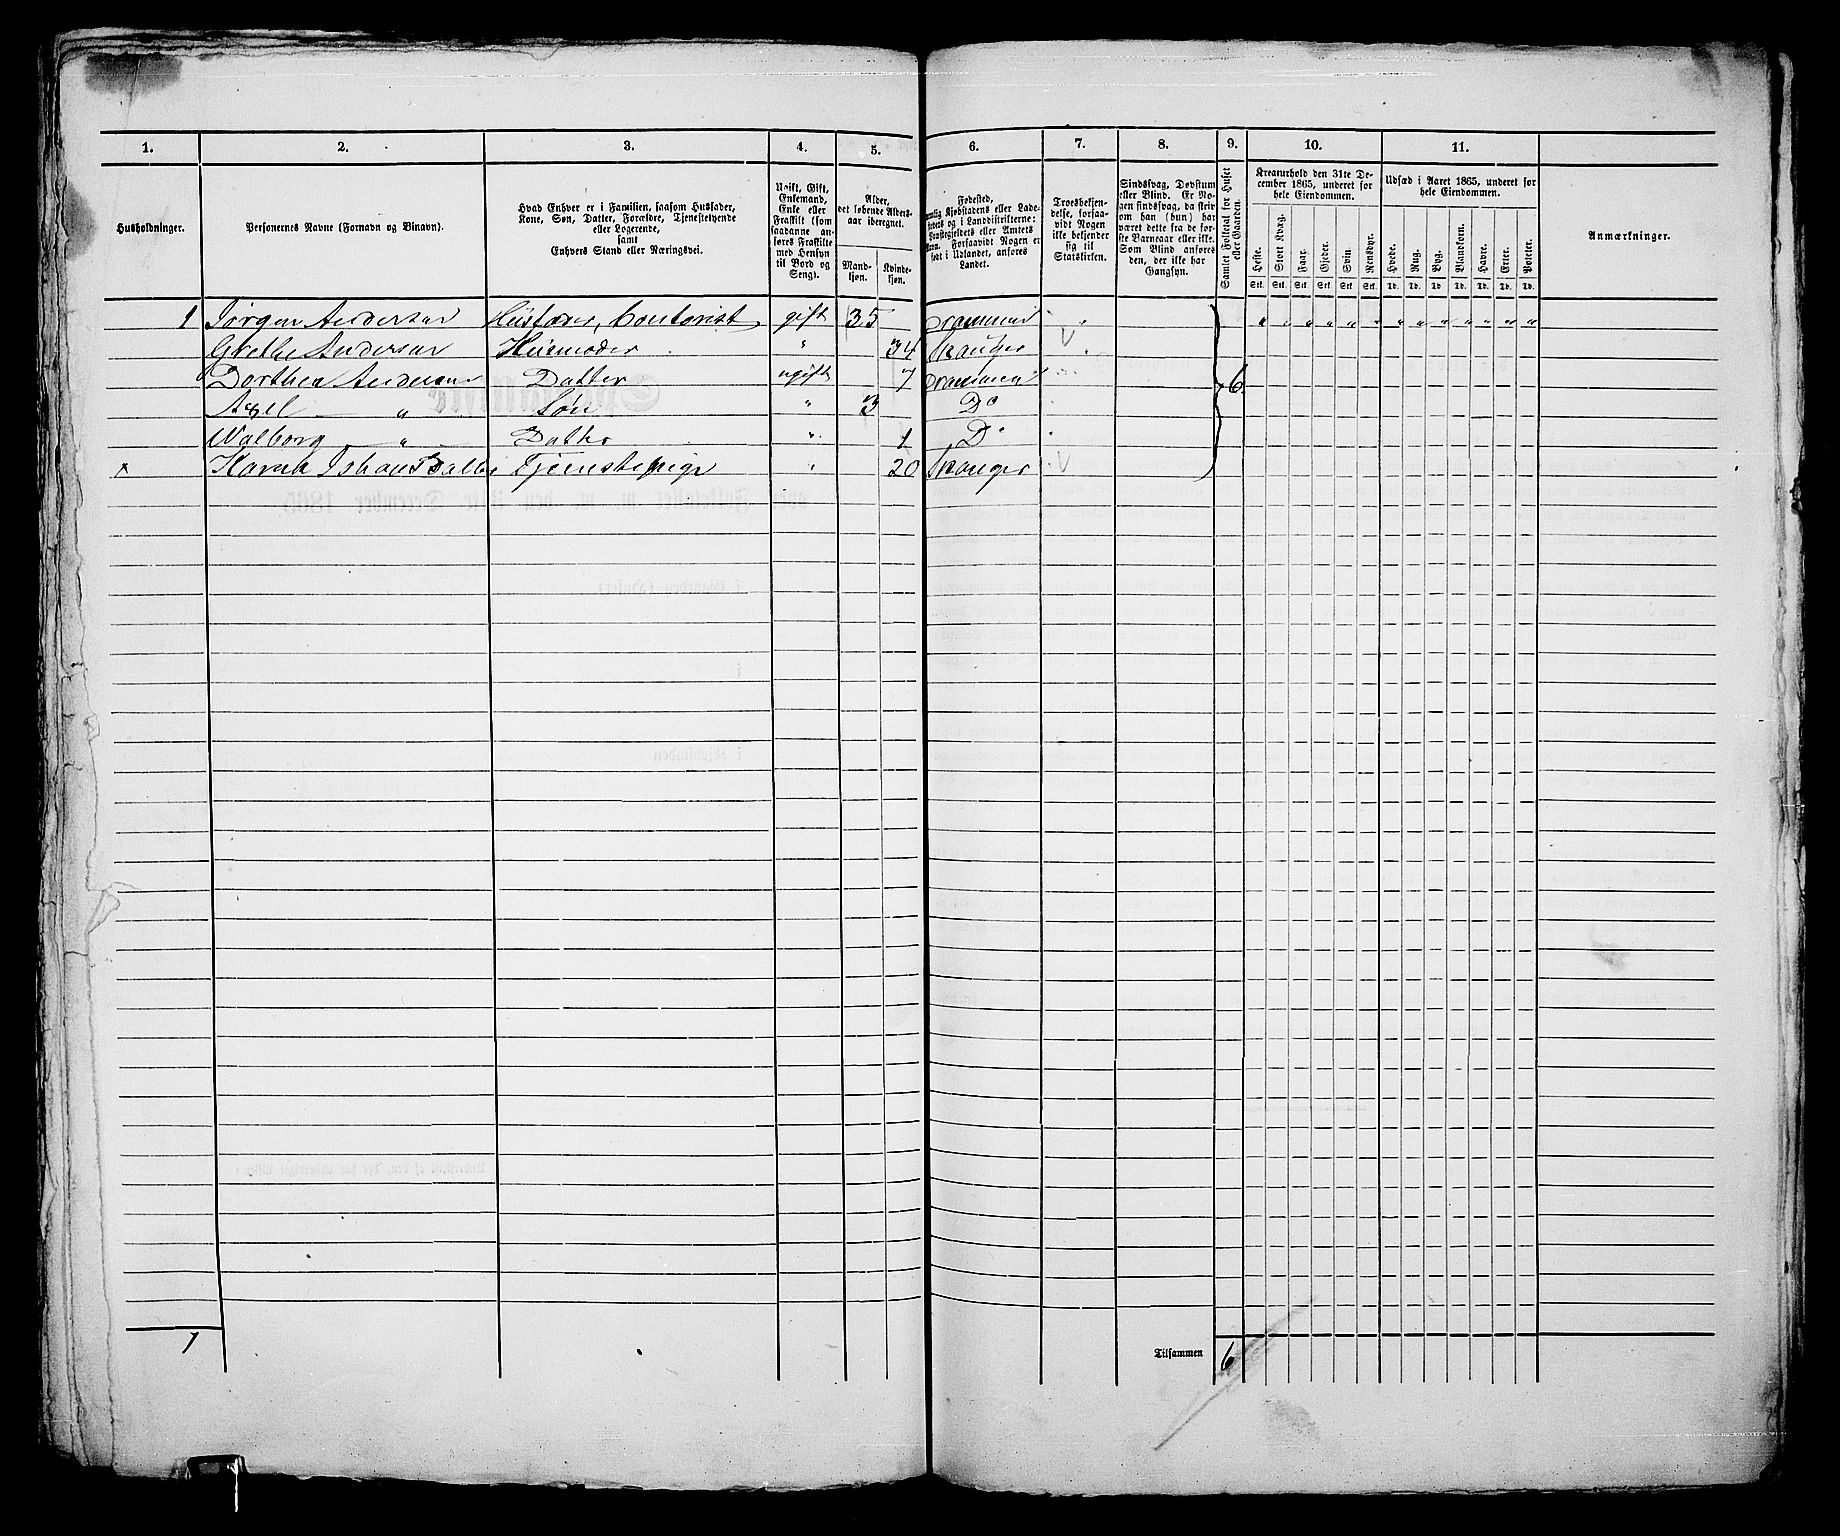 1. 2. 3. 4. 5. 6. 7. 8. 9. 10. 11.
Husholdninger.
Personernes Navne (Fornavn og Binavn).
Hvad Enhver er i Familien, saasom Husfader,
Kone, Søn, Datter, Forældre, Tjenestetyende
eller Logerende,
samt
Enhvers Stand eller Næringsvei.
Ugift, Gift,
Enkemand,
Enke eller
Fraskilt (som
saadanne an-
føres Fraskilte
med Hensyn
til Bord og
Seng).
Alder,
det løbende Alders-
aar iberegnet.
Mand-
kjøn.
Kvinde-
kjøn.
Fødested,
nemlig Kjøbstadens eller Lade-
stedets og i Landdistrikterne:
Præstegjeldets eller Amtets
Navn. Forsaavidt Nogen er
født i Udlandet, anføres
Landet.
Troesbekjen-
delse, forsaa-
vidt Nogen
ikke bekjender
sig til
Statskirken.
Sindssvag, Døvstum
eller Blind. Er No-
gen sindssvag, da skriv
om han (hun) har
været dette fra de før-
ste Barneaar eller ikke.
Som Blind anføres
den, der ikke har
Gangsyn.
Samlet Folketal for Huset
eller Gaarden.
Kreaturhold den 31te De-
cember 1865, underet for
hele Eiendommen.
Heste. Stort Kvæg. Faar. Gjeder. Svin. Rensdyr.
Stk. Stk. Stk. Stk. Stk. Stk.
Udsæd i Aaret 1865, underet for
hele Eiendommen.
Hvede. Rug. Byg. Blandkorn. Havre. Erter. Poteter.
Td. Td. Td. Td. Td. Td. Td.
Anmærkninger.
1 Jørgen Andersen Husfader, Contorist gift 35 Drammen " " " " " " " " " " " " "
Grethe Andersen Huusmoder " 34 
Dorthea Andersen Datter ugift 7 Drammen 6
Axel — " Søn " 3 Do
Walborg — " Datter " 1 Do
x Karen Tjenestepige " 20
1
Tilsammen 6